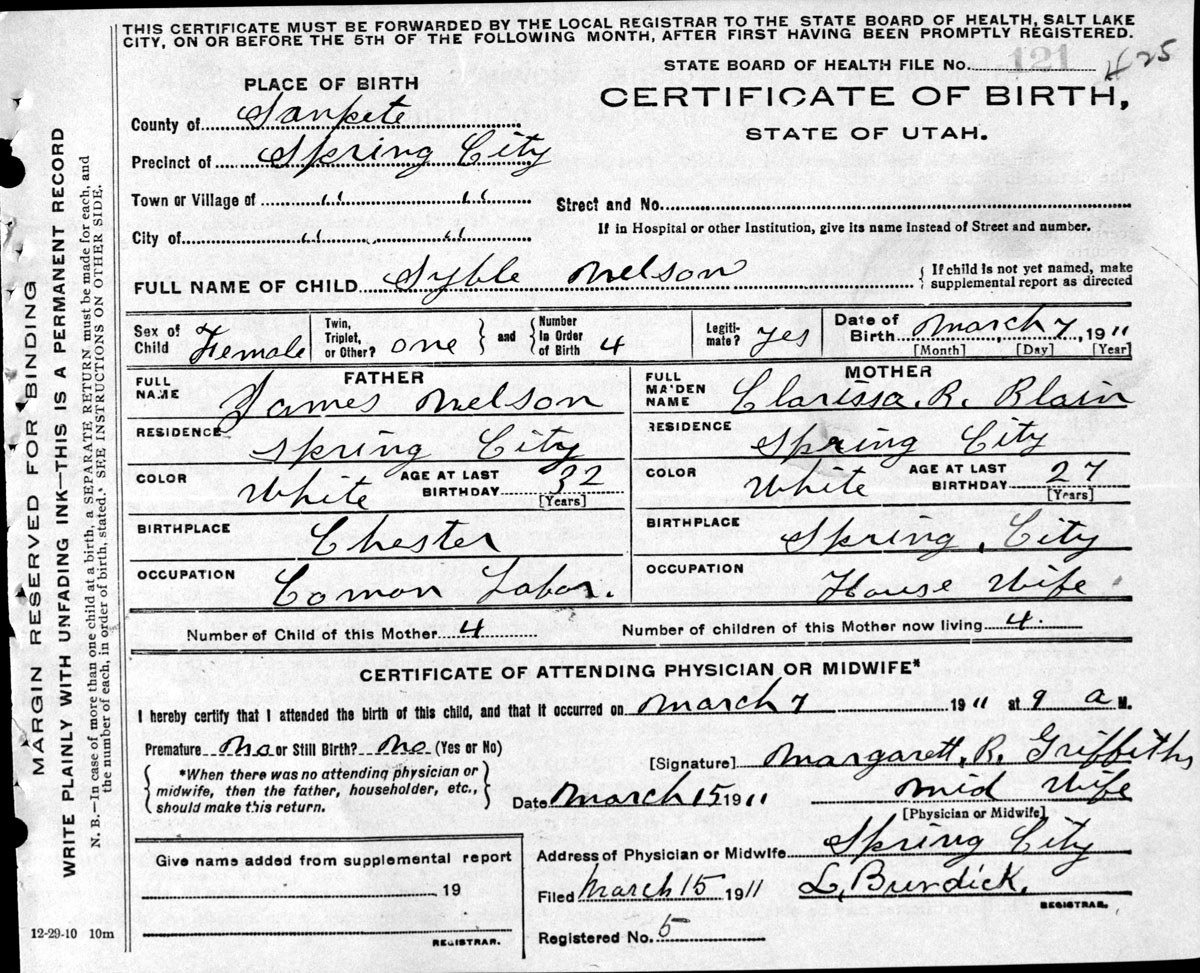 THIS CERTIFICATE MUST BE FORWARDED BY THE LOCAL REGISTRAR TO THE STATE BOARD OF HEALTH, SALT LAKE
CITY, ON OR BEFORE THE 5TH OF THE FOLLOWING MONTH, AFTER FIRST HAVING BEEN PROMPTLY REGISTERED.
STATE BOARD OF HEALTH FILE No. 121 425
PLACE OF BIRTH
CERTIFICATE OF BIRTH,
STATE OF UTAH.
County of Sanpete
Precinct of Spring City
Town or Village of " "
Street and No.
City of " "
If in Hospital or other Institution, give its name instead of Street and number.
FULL NAME OF CHILD Syble Nelson
{ If child is not yet named, make
supplemental report as directed
Sex of Child Female
Twin, Triplet, or Other? one } and { Number in Order of Birth 4
Legitimate? yes
Date of Birth March 7, 1911
[Month] [Day] [Year]
FATHER
FULL NAME James Nelson
RESIDENCE Spring City
COLOR White AGE AT LAST BIRTHDAY 32
[Years]
BIRTHPLACE Chester
OCCUPATION Comon Labor.
MOTHER
FULL MAIDEN NAME Clarissa. R. Blain
RESIDENCE Spring City
COLOR White AGE AT LAST BIRTHDAY 27
[Years]
BIRTHPLACE Spring City
OCCUPATION House Wife
Number of Child of this Mother 4 Number of children of this Mother now living 4.
CERTIFICATE OF ATTENDING PHYSICIAN OR MIDWIFE*
I hereby certify that I attended the birth of this child, and that it occurred on March 7 1911 at 9 a M.
Premature No or Still Birth? No (Yes or No)
{ *When there was no attending physician or
midwife, then the father, householder, etc.,
should make this return. }
[Signature] Margarett. R. Griffiths
Date March 15 1911 Mid Wife
[Physician or Midwife]
Give name added from supplemental report
19
REGISTRAR.
Address of Physician or Midwife Spring City
Filed March 15 1911 L. Burdick.
REGISTRAR.
Registered No. 5
12-29-10 10m
MARGIN RESERVED FOR BINDING
WRITE PLAINLY WITH UNFADING INK—THIS IS A PERMANENT RECORD
N. B.—In case of more than one child at a birth, a SEPARATE RETURN must be made for each, and
the number of each, in order of birth, stated. SEE INSTRUCTIONS ON OTHER SIDE.